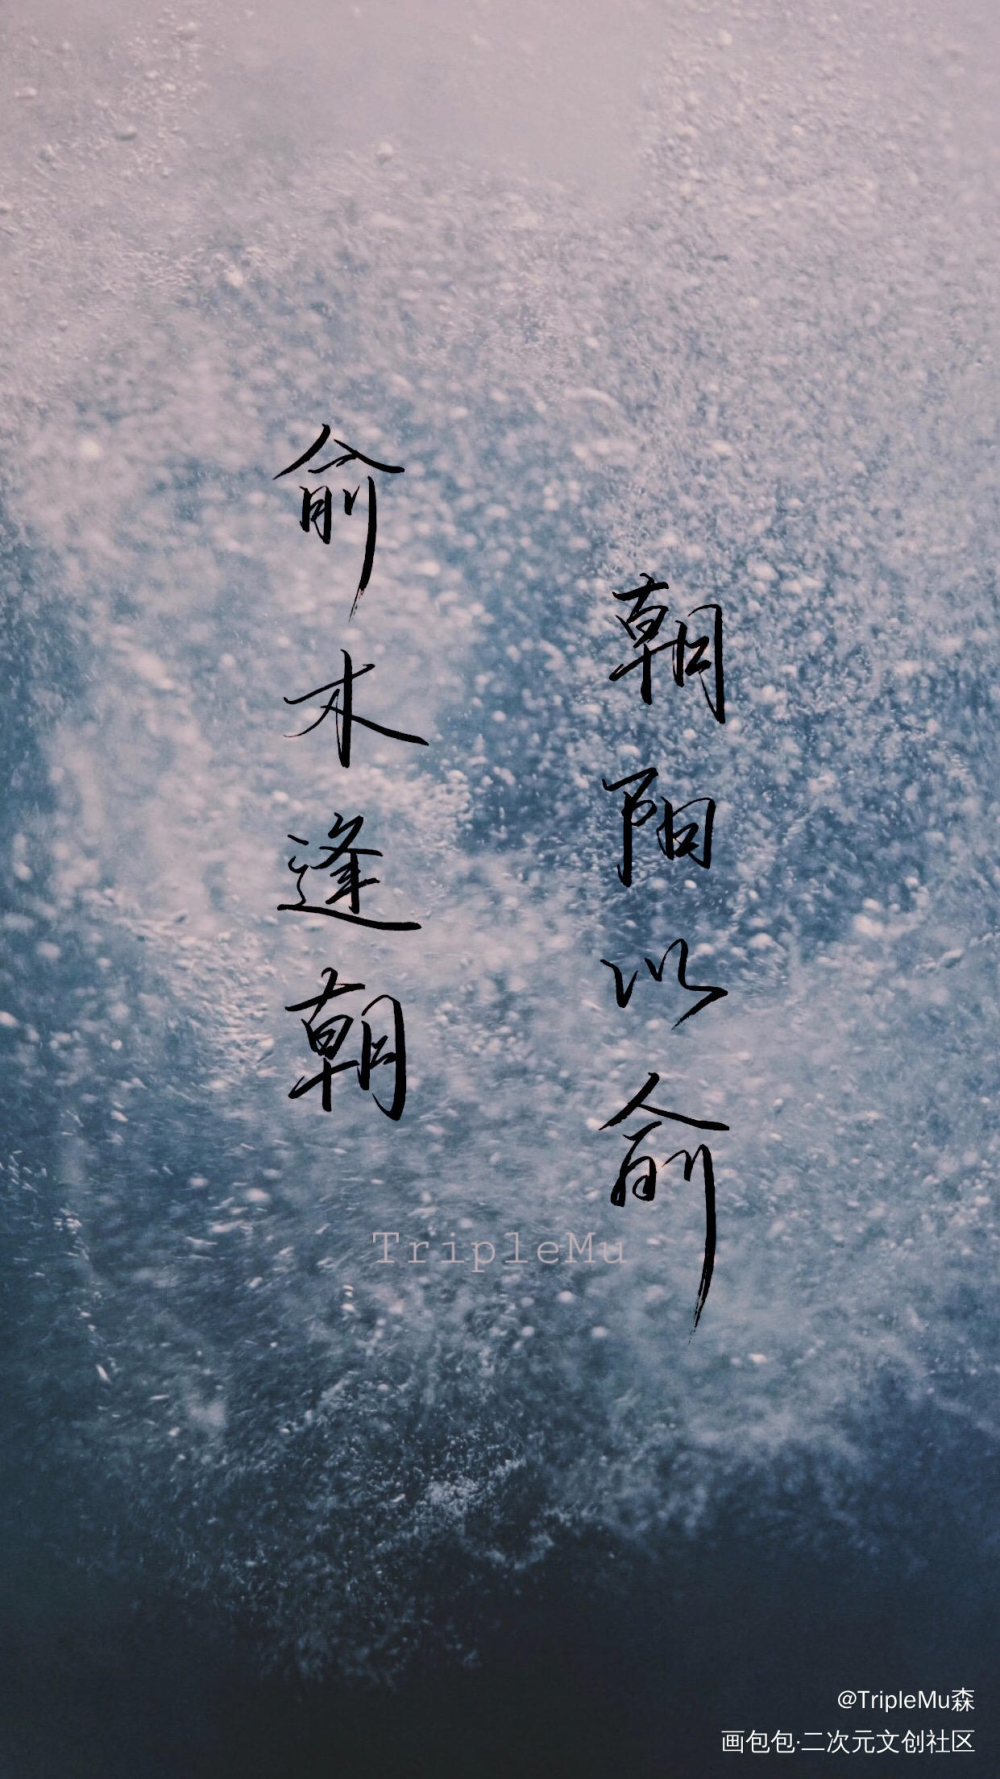 俞木逢朝
朝阳以俞
TripleMu
@TripleMu森
画包包·二次元文创社区